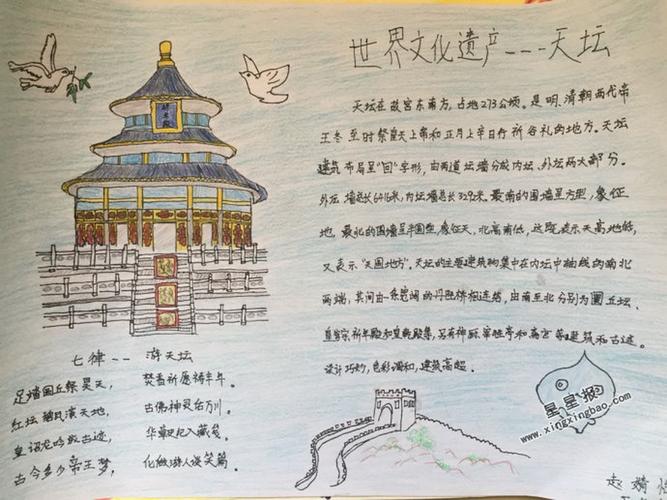 世界文化遗产---天坛
天坛在故宫东南方，占地273公顷。是明、清朝两代帝
王冬至时祭皇天上帝和正月上辛日行祈谷礼的地方。天坛
建筑布局呈"回"字形，由两道坛墙分成内坛、外坛两大部分。
外坛墙总长6416米，内坛墙总长3292米。最南的围墙呈方型，象征
地，最北的围墙呈半圆型，象征天，北高南低，这既表示天高地低，
又表示"天圆地方"。天坛的主要建筑物集中在内坛中轴线的南北
两端，其间由一条宽阔的丹陛桥相连结，由南至北分别为圜丘坛、
皇穹宇祈年殿和皇乾殿等，另有神厨宰牲亭和斋宫等建筑和古迹。
设计巧妙，色彩调和，建筑高超。
七律---游天坛
足踏圜丘祭昊天， 焚香祈愿祷丰年。
红坛 天地， 古佛神灵台万川。
皇 龙吟叙古迹， 华 入藏 。
古今多少帝王梦， 化做游人谈笑篇。
星星报
www.xingxingbao.com
赵